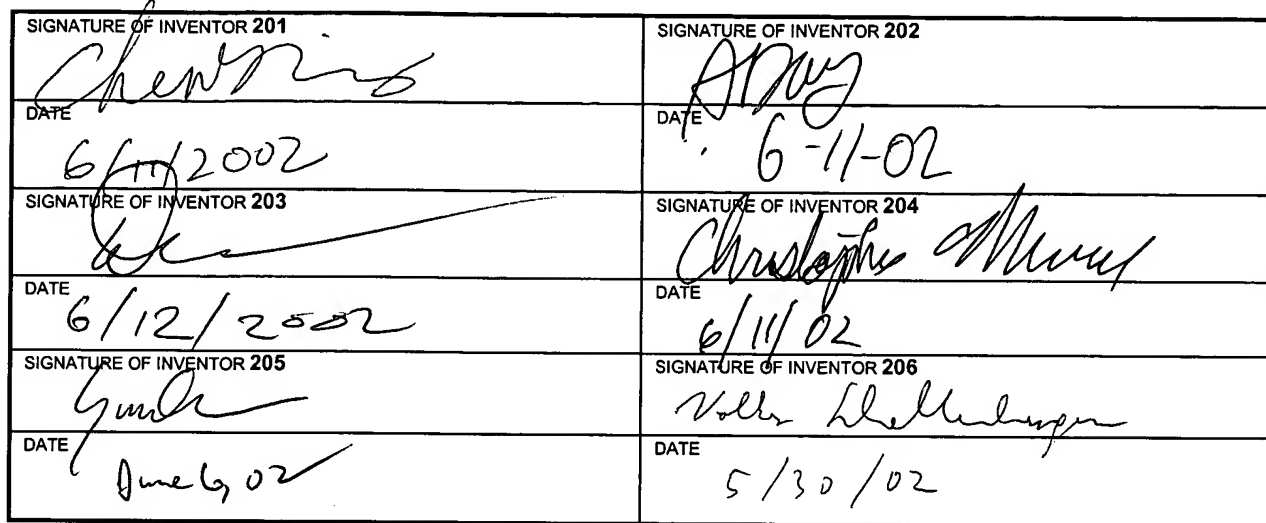 SIGNATURE OF INVENTOR 201
SIGNATURE OF INVENTOR 202
DATE
6/11/2002
DATE
6-11-02
SIGNATURE OF INVENTOR 203
SIGNATURE OF INVENTOR 204
Christopher
DATE
6/12/2002
DATE
6/11/02
SIGNATURE OF INVENTOR 205
SIGNATURE OF INVENTOR 206
Volker Schellenberger
DATE
June 6, 02
DATE
5/30/02